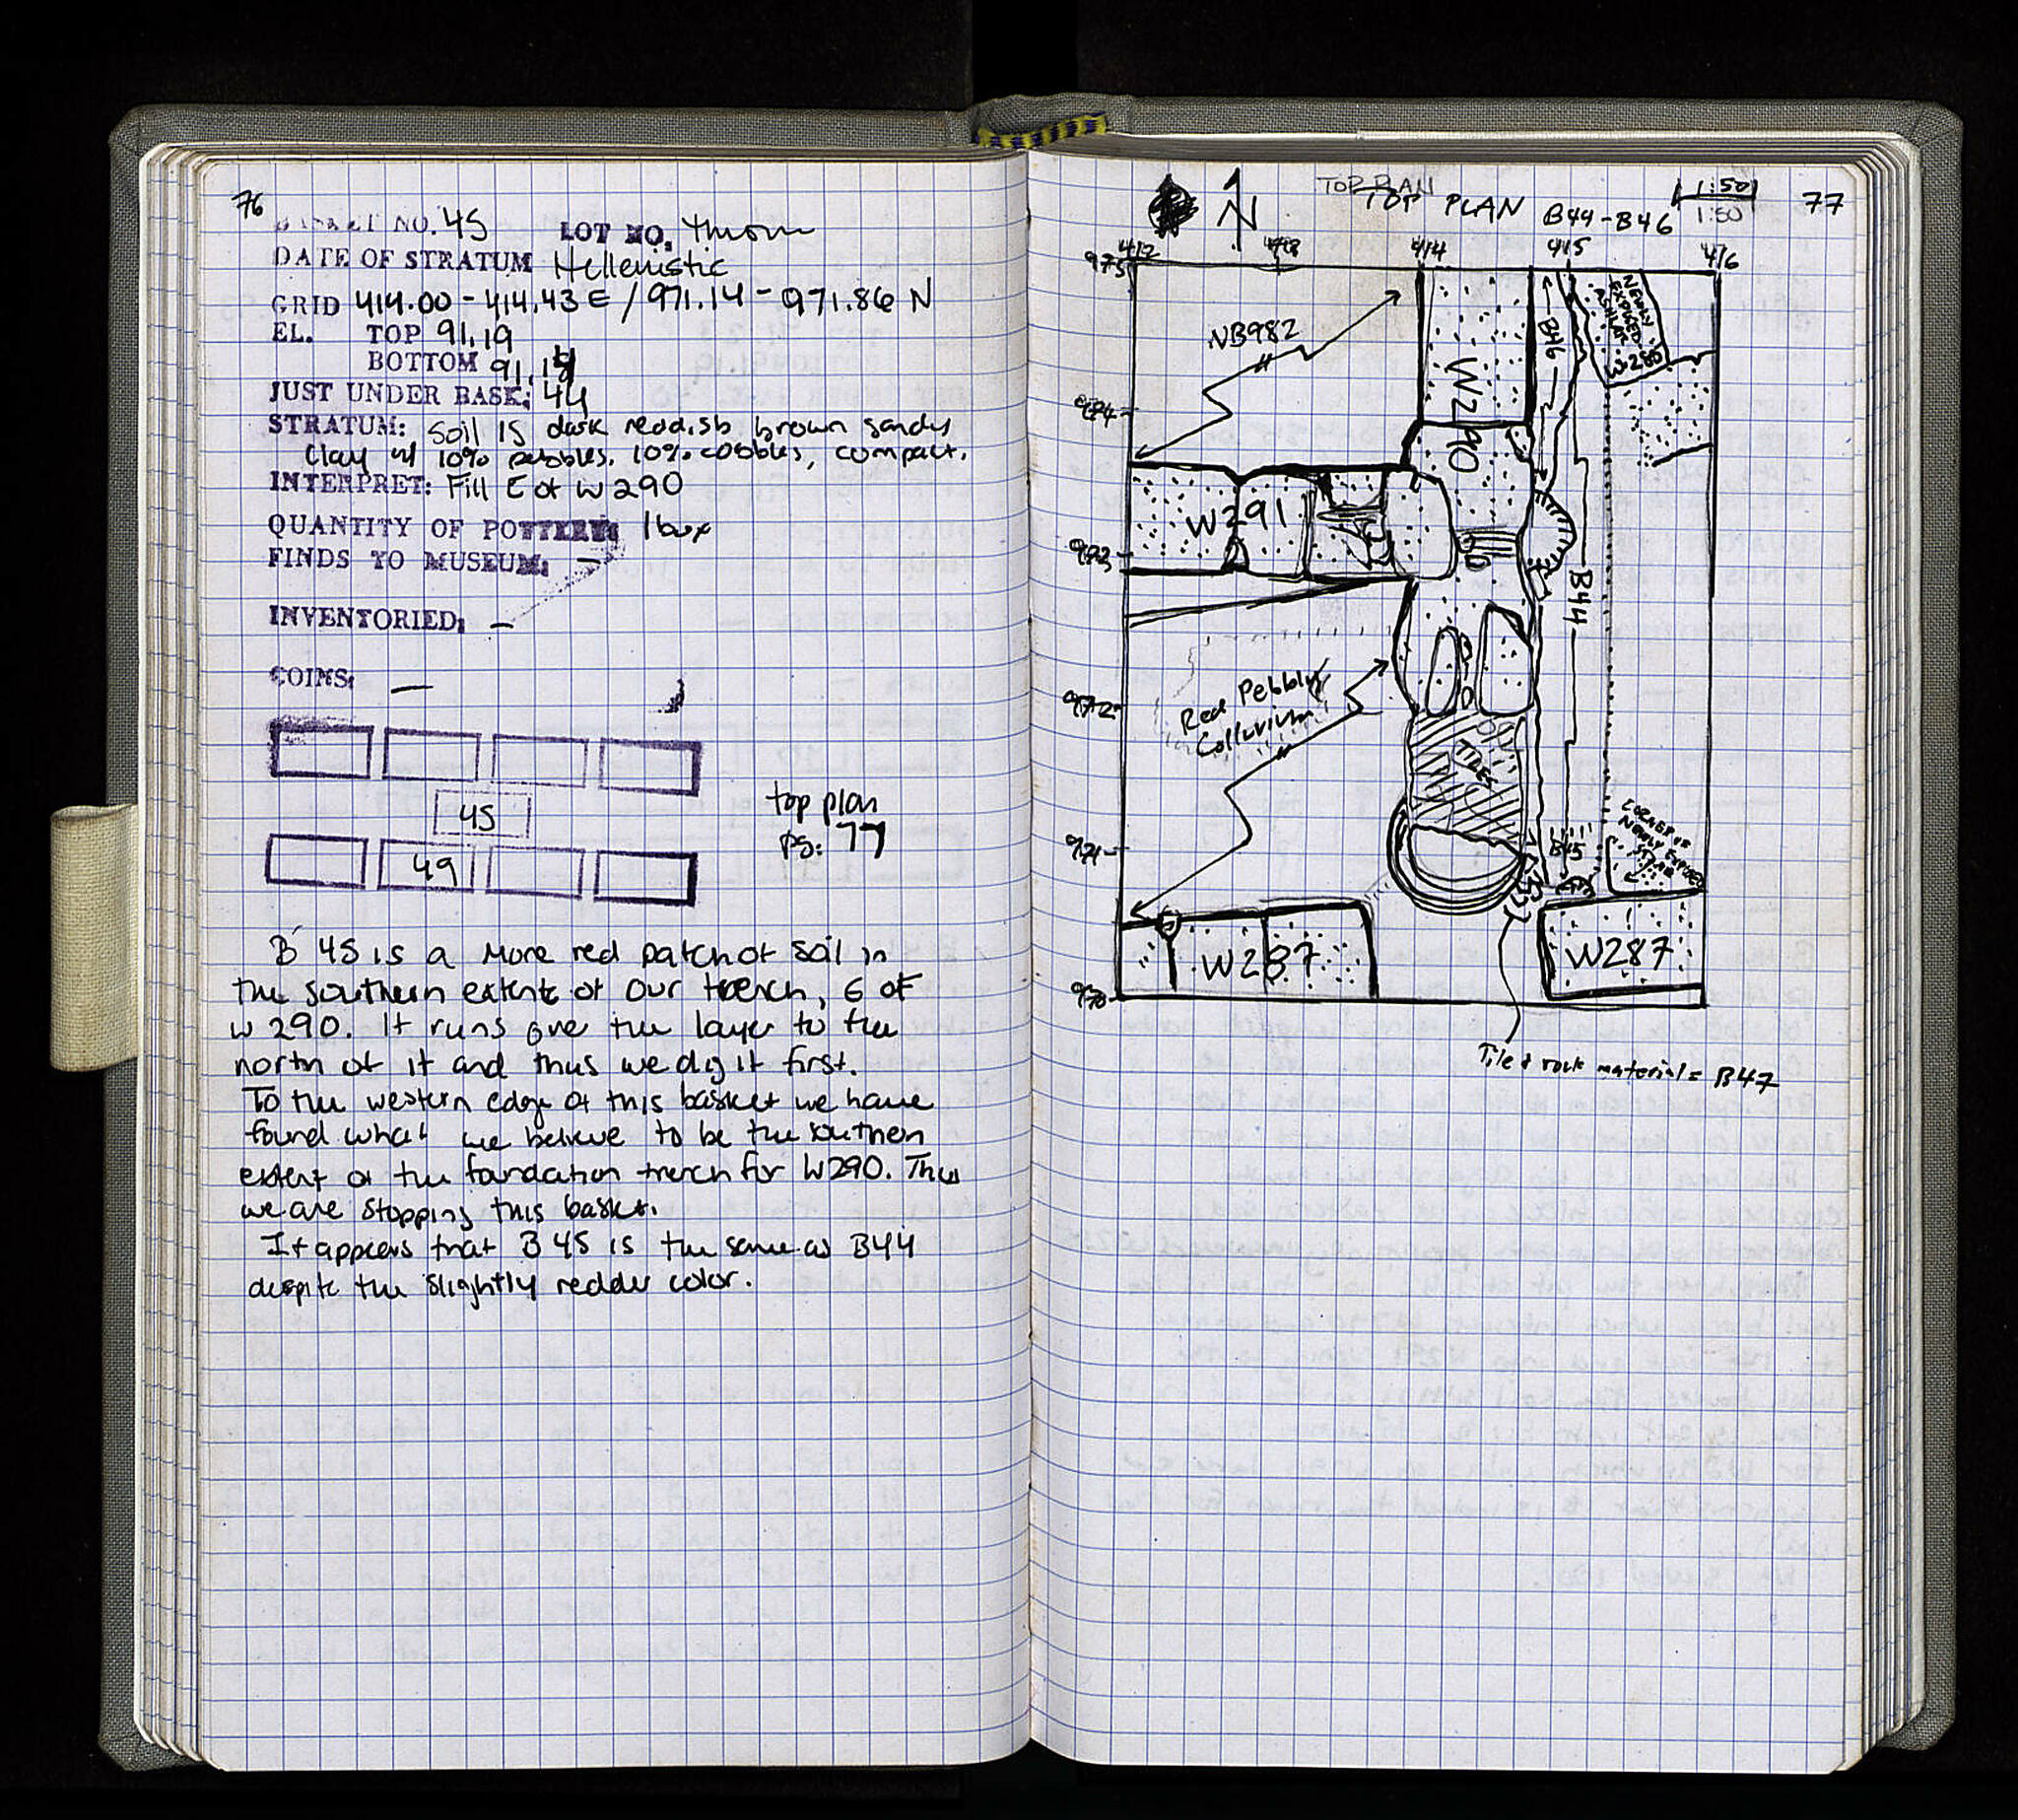 76
BASKET NO. 45 LOT NO. throw
DATE OF STRATUM Hellenistic
GRID 414.00 - 414.43 E / 971.14 - 971.86 N
EL. TOP 91.19
BOTTOM 91.
JUST UNDER BASK: 44
STRATUM: Soil is dark reddish brown sandy
Clay w/ 10% pebbles, 10% cobbles, compact.
INTERPRET: Fill E of W290
QUANTITY OF POTTERY: 1 box
FINDS TO MUSEUM: —
INVENTORIED: —
COINS: —
45
top plan
pg. 77
49
B 45 is a more red patch of soil in
the southern extent of our trench, E of
W290. It runs over the layer to the
north of it and thus we dig it first.
To the western edge of this basket we have
found what we believe to be the southern
extent of the foundation trench for W290. Thus
we are stopping this basket.
It appears that B45 is the same as B44
despite the slightly redder color.
TOP PLAN
TOP PLAN B44-B46
1:50
1:50
77
N
412
414
415
416
975
NB982
W290
B46
NEWLY
EXPOSED
ASHLAR
W280
W291
B44
972
Red Pebbly
Colluvium
TILES
971
B45
CORNER OF
NEWLY EXPOSED
970
W287
W287
Tile & rock material = B47